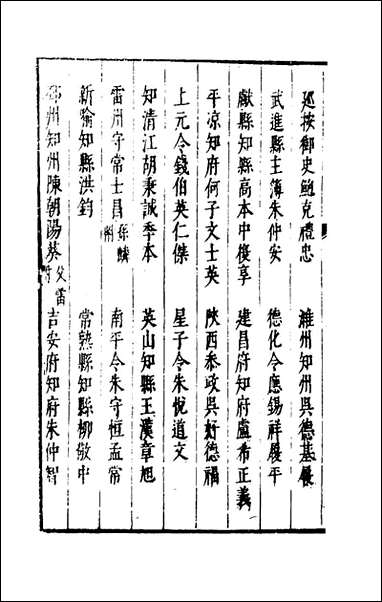 廵按御史鮑克禮忠　濰州知州吳德基履
武進縣主簿朱仲安　德化令應錫祥履平
獻縣知縣高本中復亨　建昌府知府盧希正義
平凉知府何子文士英　陜西叅政吳好德福
上元令錢伯英仁傑　星子令朱悅道文
知清江胡秉誠季本　英山知縣王漢章旭
雷州守常士昌孫麟附　南平令朱守恒孟常
新喻知縣洪鈞　常熟縣知縣柳敬中
州知州陳朝陽葵父雷　吉安府知府朱仲智